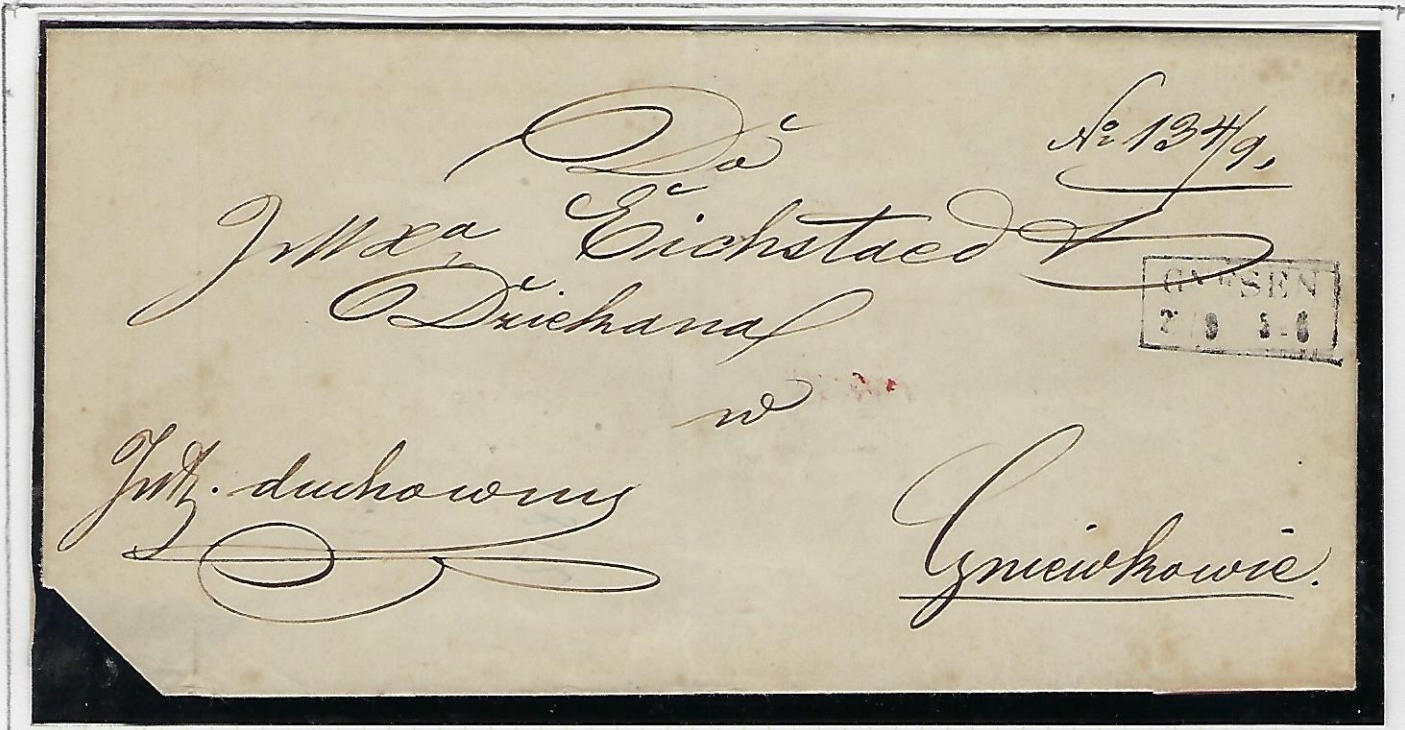 Do
No 134/9.
JMXa Eichstaed
Dziekana
GNESEN
9 5-6
w
Int. duchowny
Gniewkowie.